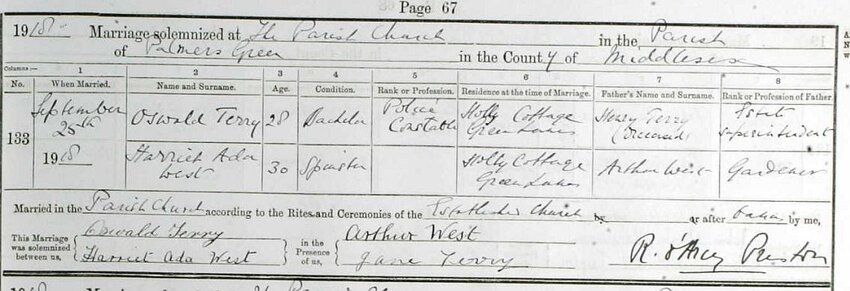 Page 67
1918 Marriage solemnized at The Parish Church in the Parish
of Palmers Green in the County of Middlesex
Columns:— 1 2 3 4 5 6 7 8
No. When Married. Name and Surname. Age. Condition. Rank or Profession. Residence at the time of Marriage. Father's Name and Surname. Rank or Profession of Father.
133 September 25th 1918 Oswald Terry 28 Bachelor Police Constable Holly Cottage Green Lanes Henry Terry (Deceased) Estate Superintendent
Harriet Ada West 30 Spinster Holly Cottage Green Lanes Arthur West Gardener
Married in the Parish Church according to the Rites and Ceremonies of the Established Church by or after Banns by me,
This Marriage was solemnized between us,
Oswald Terry
Harriet Ada West
in the Presence of us,
Arthur West
Jane Terry
R. d'Arcy Preston